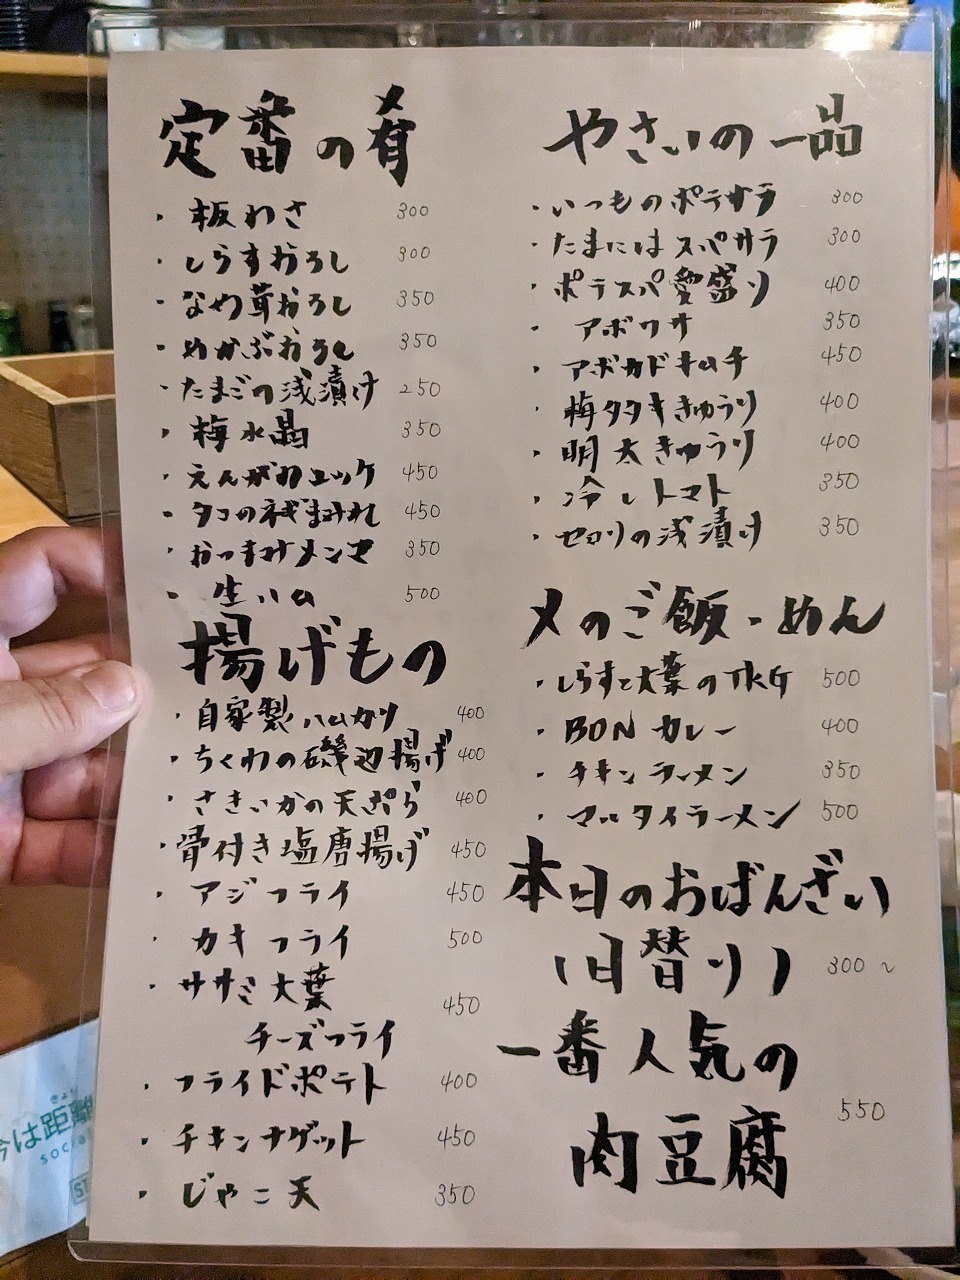 定番の肴
・板わさ 300
・しらすおろし 300
・なめ茸おろし 350
・めかぶおろし 350
・たまごの浅漬け 250
・梅水晶 350
・えんがわユッケ 450
・タコのネギまみれ 450
・おつまみメンマ 350
・生ハム 500
揚げもの
・自家製ハムカツ 400
・ちくわの磯辺揚げ 400
・さきいかの天ぷら 400
・骨付き塩唐揚げ 450
・アジフライ 450
・カキフライ 500
・ササミ大葉
チーズフライ 450
・フライドポテト 400
・チキンナゲット 450
・じゃこ天 350
やさいの一品
・いつものポテサラ 300
・たまにはスパサラ 300
・ポテスパ愛盛り 400
・アボワサ 350
・アボカドキムチ 450
・梅タタキきゅうり 400
・明太きゅうり 400
・冷しトマト 350
・セロリの浅漬け 350
〆のご飯・めん
・しらすと大葉のTKG 500
・BONカレー 400
・チキンラーメン 350
・マルタイラーメン 500
本日のおばんざい
(日替り) 300~
一番人気の
肉豆腐 550
今は距離